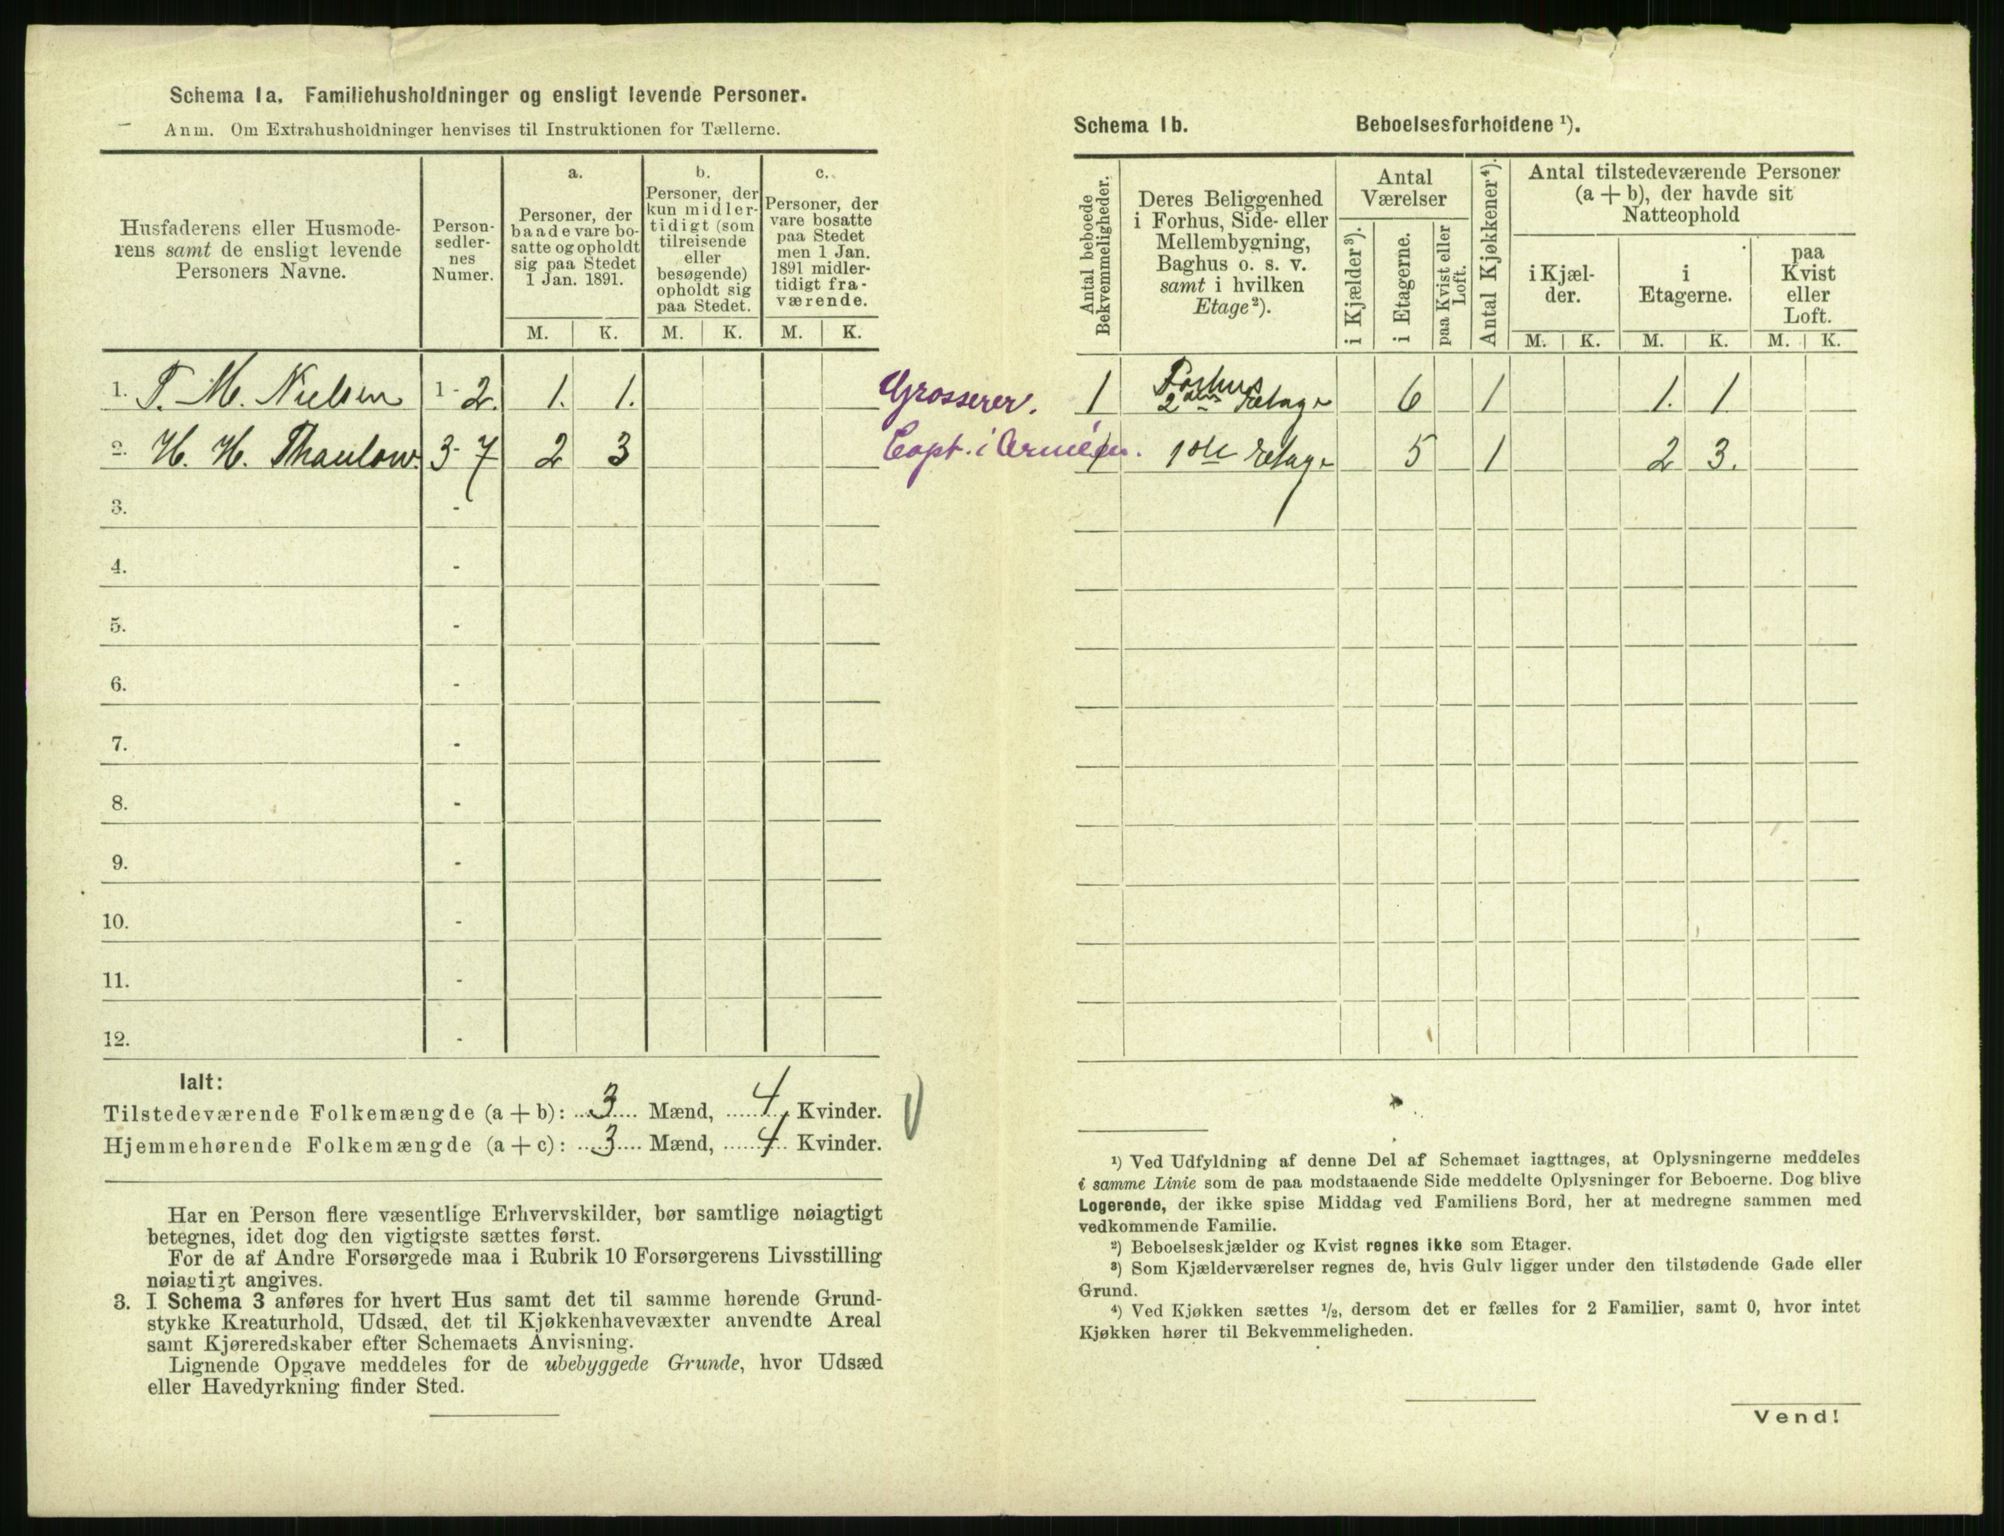 Schema 1a. Familiehusholdninger og ensligt levende Personer.
Anm. Om Extrahusholdninger henvises til Instruktionen for Tællerne.
Husfaderens eller Husmode-
rens samt de ensligt levende
Personers Navne.
Person-
sedler-
nes
Numer.
a.
Personer, der
baade vare bo-
satte og opholdt
sig paa Stedet
1 Jan. 1891.
b.
Personer, der
kun midler-
tidigt (som
tilreisende
eller
besøgende)
opholdt sig
paa Stedet.
c.
Personer, der
vare bosatte
paa Stedet
men 1 Jan.
1891 midler-
tidigt fra-
værende.
M. K. M. K. M. K.
1. T. M. Nielsen 1-2. 1. 1. Grosserer.
2. H. H. Thaulow. 3-7 2 3 Capt. i Armeen.
3. -
4. -
5. -
6. -
7. -
8. -
9. -
10. -
11. -
12. -
Ialt:
Tilstedeværende Folkemængde (a+b): 3 Mænd, 4 Kvinder.
Hjemmehørende Folkemængde (a+c): 3 Mænd, 4 Kvinder.
Har en Person flere væsentlige Erhvervskilder, bør samtlige nøiagtigt
betegnes, idet dog den vigtigste sættes først.
For de af Andre Forsørgede maa i Rubrik 10 Forsørgerens Livsstilling
nøiagtigt angives.
3. I Schema 3 anføres for hvert Hus samt det til samme hørende Grund-
stykke Kreaturhold, Udsæd, det til Kjøkkenhavevæxter anvendte Areal
samt Kjøreredskaber efter Schemaets Anvisning.
Lignende Opgave meddeles for de ubebyggede Grunde, hvor Udsæd
eller Havedyrkning finder Sted.
Schema 1b. Beboelsesforholdene ¹).
Antal beboede
Bekvemmeligheder.
Deres Beliggenhed
i Forhus, Side- eller
Mellembygning,
Baghus o. s. v.
samt i hvilken
Etage²).
Antal
Værelser
i Kjælder³).
i Etagerne.
paa Kvist eller
Loft.
Antal Kjøkkener⁴).
Antal tilstedeværende Personer
(a+b), der havde sit
Natteophold
i Kjæl-
der.
i
Etagerne.
paa
Kvist
eller
Loft.
M. K. M. K. M. K.
1 Forhus
2den Etage 6 1 1. 1
1 1ste Etage 5 1 2 3.
¹) Ved Udfyldning af denne Del af Schemaet iagttages, at Oplysningerne meddeles
i samme Linie som de paa modstaaende Side meddelte Oplysninger for Beboerne. Dog blive
Logerende, der ikke spise Middag ved Familiens Bord, her at medregne sammen med
vedkommende Familie.
²) Beboelseskjælder og Kvist regnes ikke som Etager.
³) Som Kjælderværelser regnes de, hvis Gulv ligger under den tilstødende Gade eller
Grund.
⁴) Ved Kjøkken sættes ½, dersom det er fælles for 2 Familier, samt 0, hvor intet
Kjøkken hører til Bekvemmeligheden.
Vend!